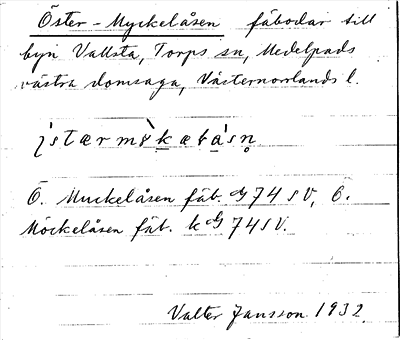 Öster-Myckelåsen fäbodar till
byn Vallsta, Torps sn, Medelpads
västra domsaga, Västernorrlands l.
Ö. Muckelåsen fäb. 74 SV, Ö.
Möckelåsen fäb. k 74 SV.
Valter Jansson 1932